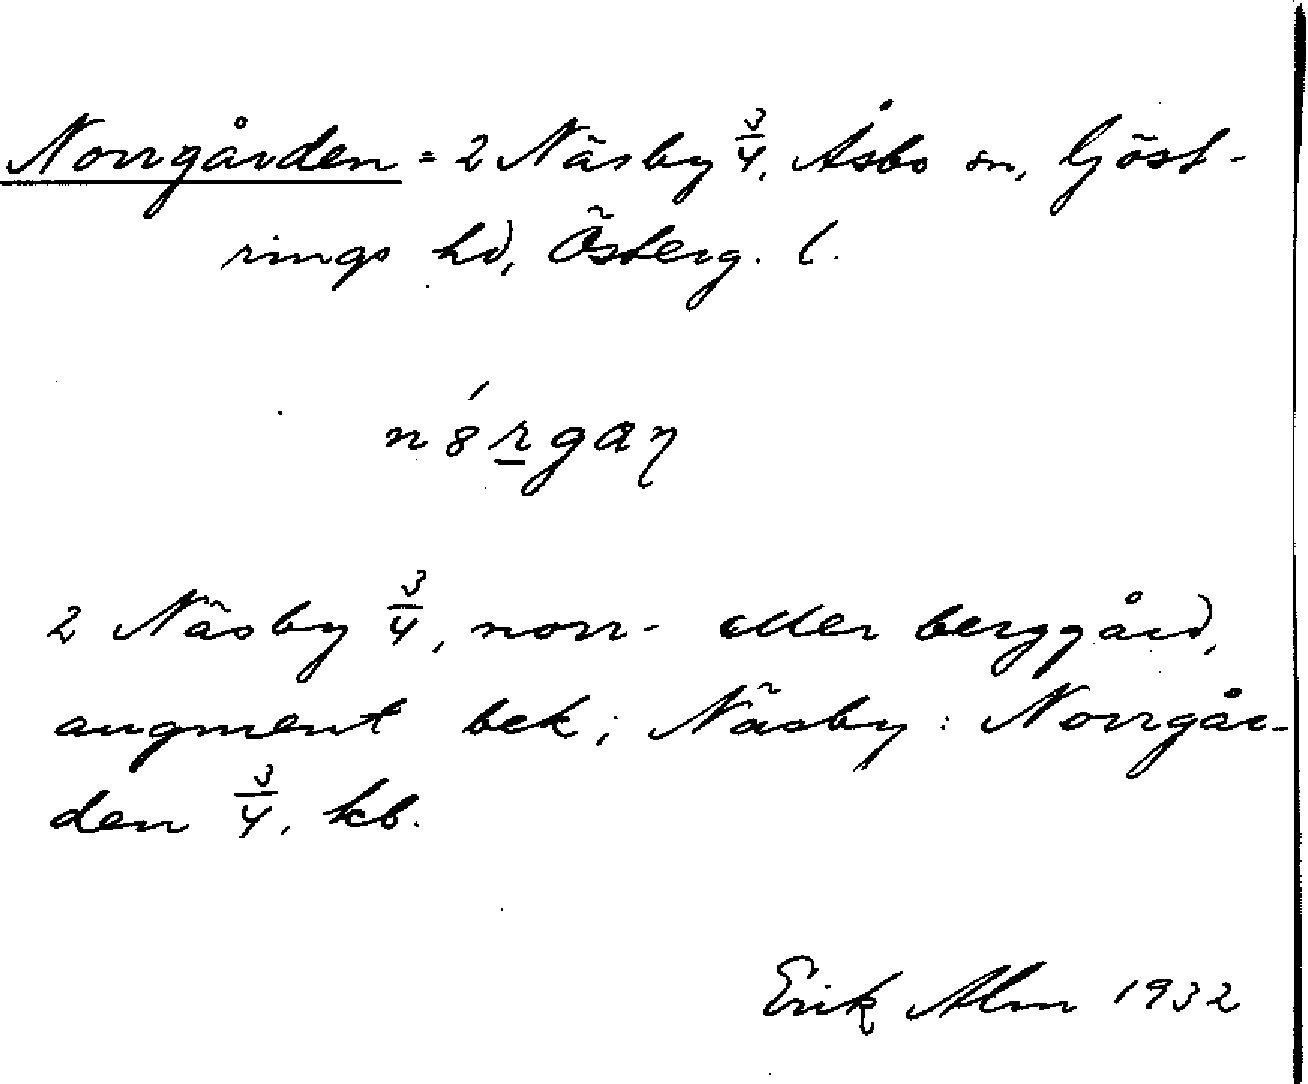 Norrgården = 2 Näsby 3/4, Åsbo sn, Göst-
rings hd, Österg. l.
n8́rgaɲ
2 Näsby 3/4, norr- eller berggård,
augment bek; Näsby: Norrgår-
den 3/4, kb.
Erik Alm 1932